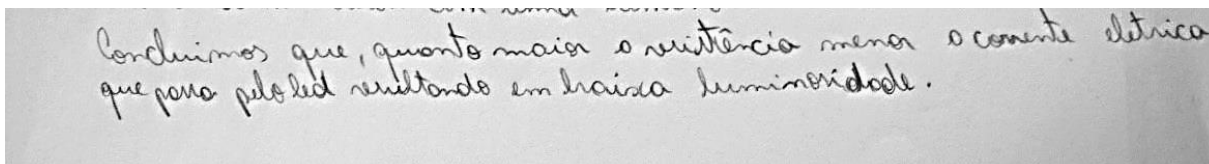 Concluimos que, quanto maior a resistência menor a corrente eletrica
que passa pelo led resultando em baixa luminosidade.